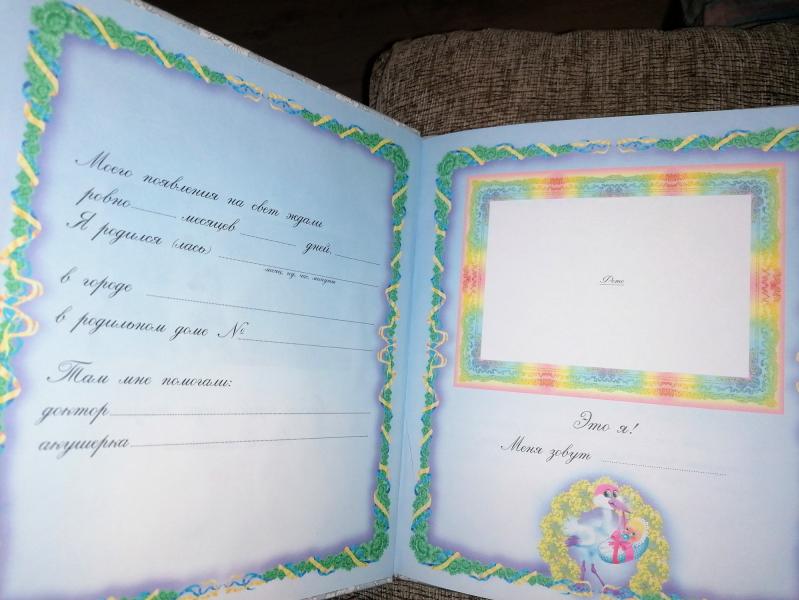 Моего появления на свет ждали
ровно месяцев дней,
Я родился (лась)
число, год, час, минуты
в городе
в родильном доме №
Там мне помогали:
доктор
акушерка
Фото
Это я!
Меня зовут